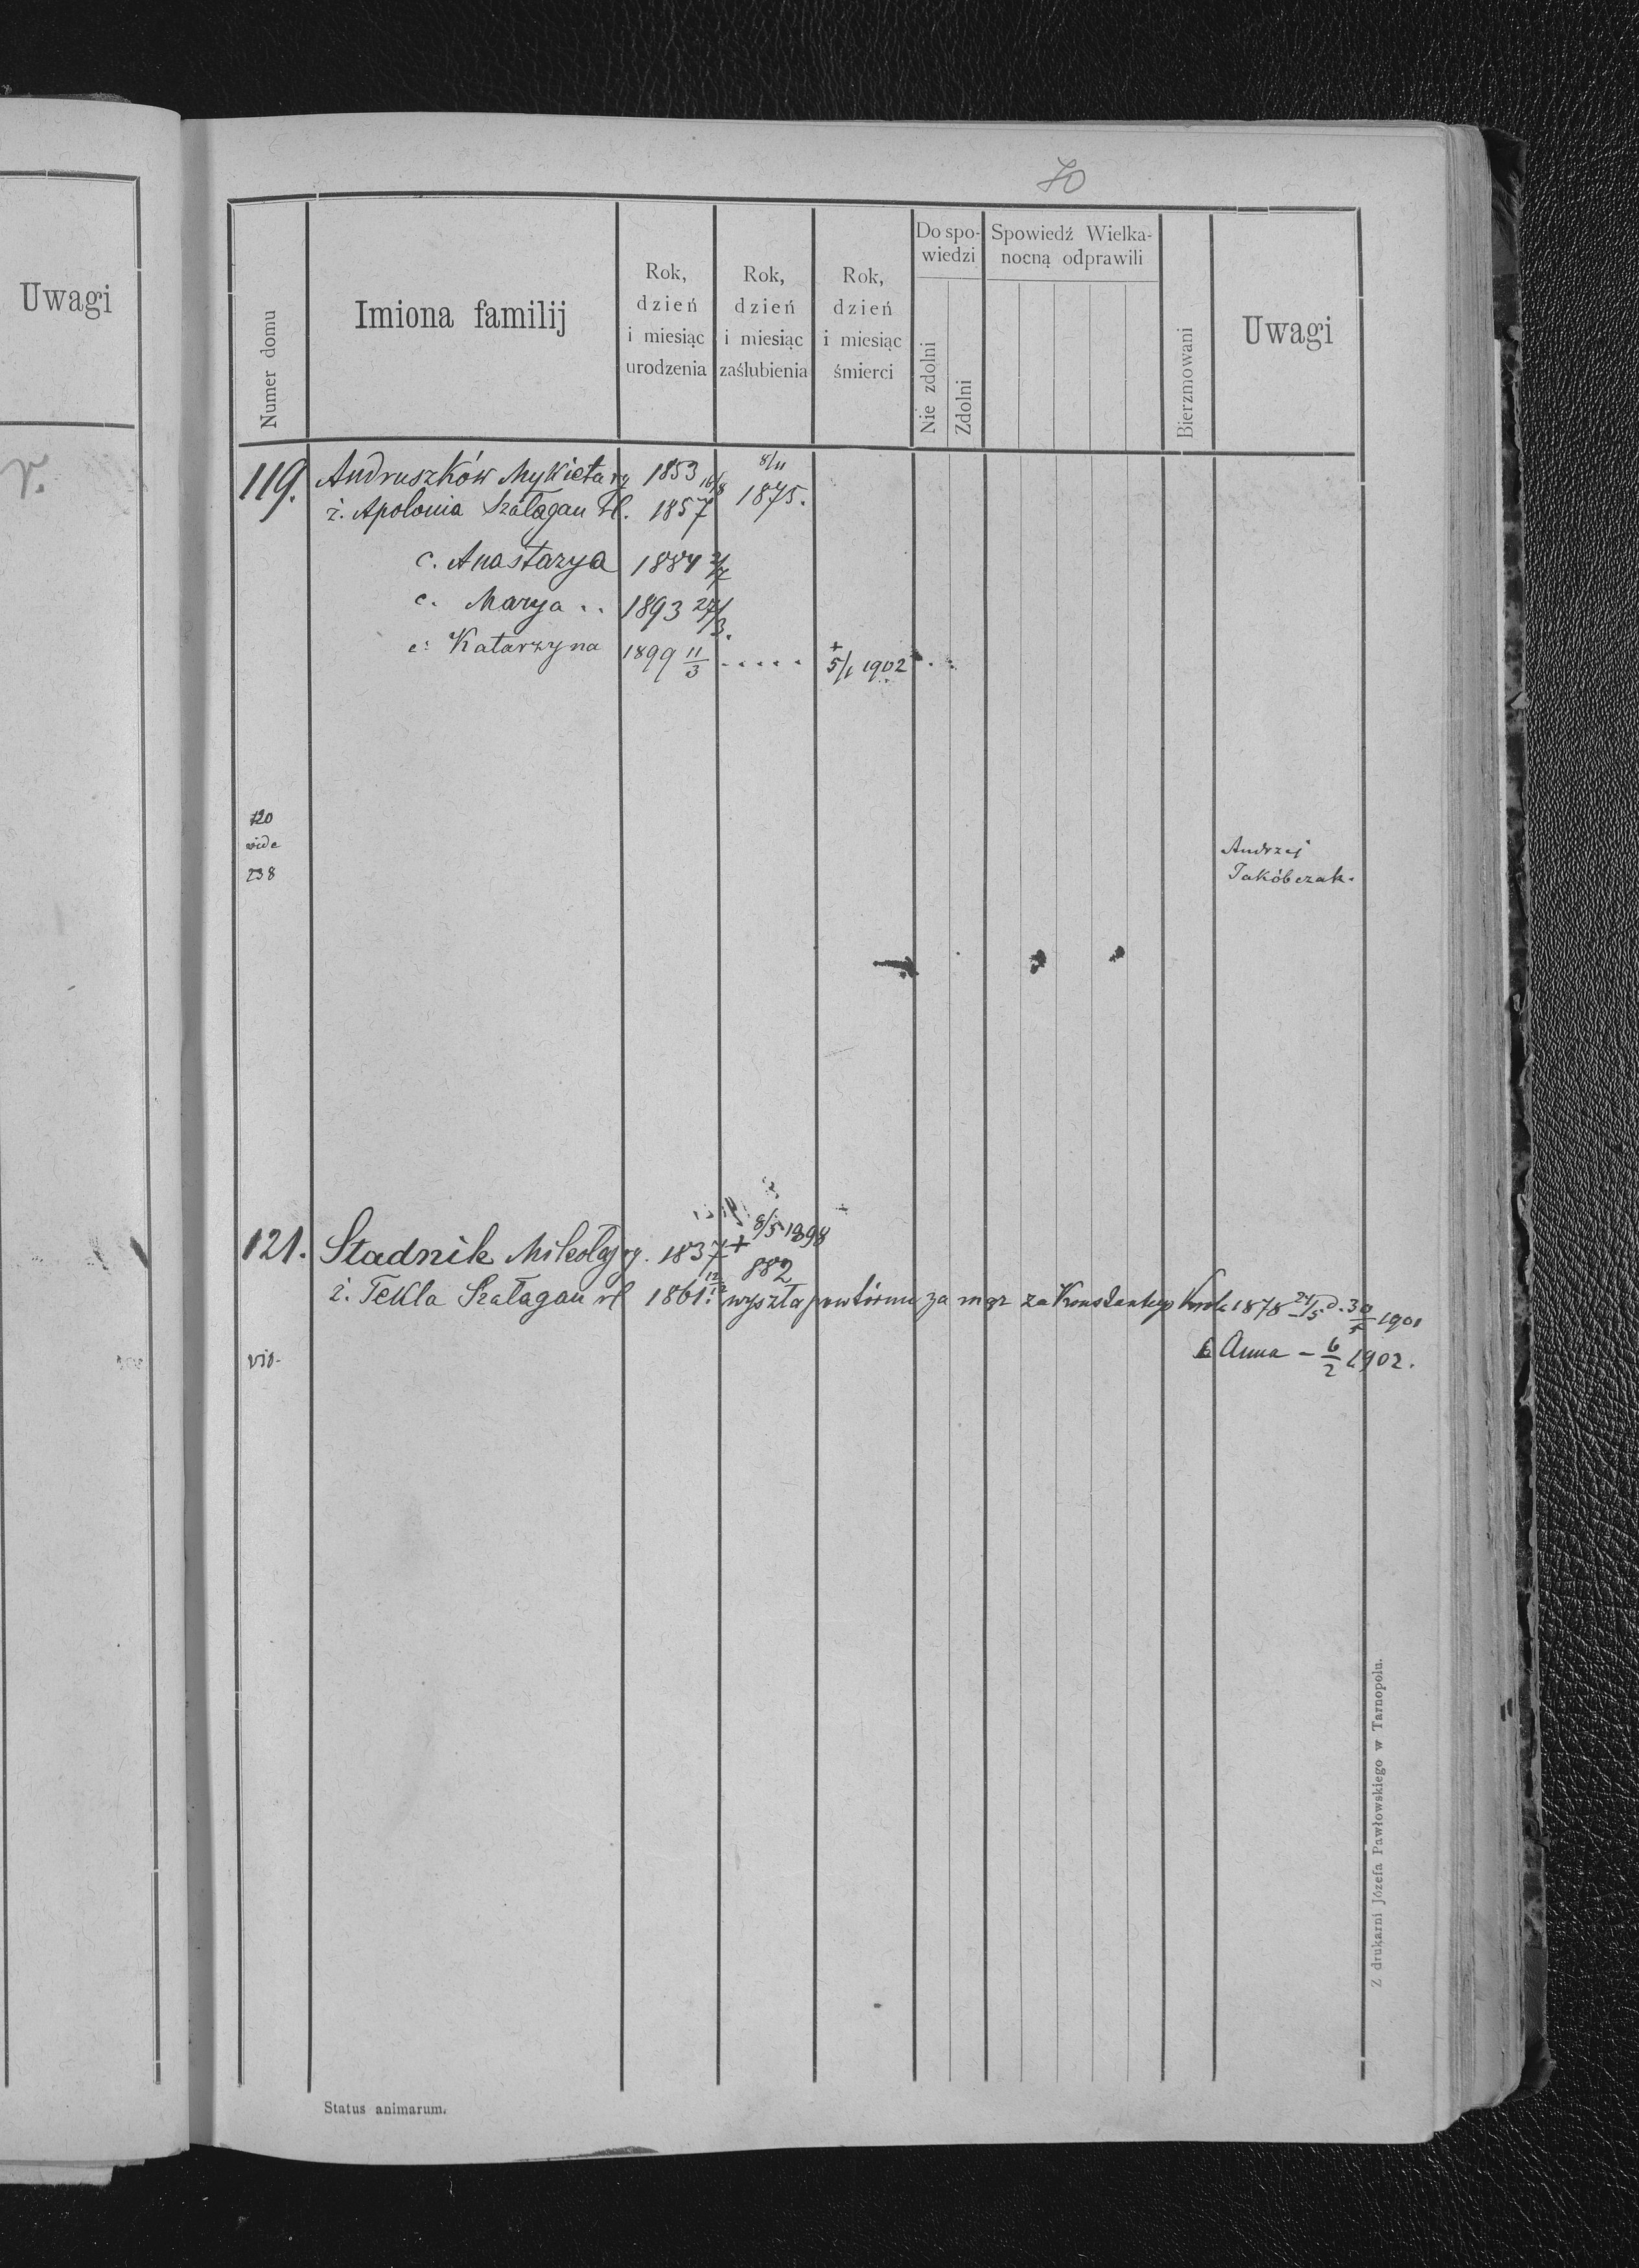 70
Uwagi
Numer domu
Imiona familij
Rok,
dzień
i miesiąc
urodzenia
Rok,
dzień
i miesiąc
zaślubienia
Rok,
dzień
i miesiąc
śmierci
Do spo-
wiedzi
Nie zdolni
Zdolni
Spowiedź Wielka-
nocną odprawili
Bierzmowani
Uwagi
119. Andruszków Mykieta rg 1853 8/11
ż. Apolonia Szałagan rl. 1857 16/8 1875.
c. Anastazya 1884 2/7
c. Marya .. 1893 27/3.
c. Katarzyna 1899 11/3 ..... + 5/1 1902
120
vide
238
Andrzej
Jakóbczak.
121. Stadnik Mikołaj rg. 1837 + 8/5 1898
882
ż. Tekla Szałagan rl 1861. 12/12 wyszła powtórnie za mąż za Konstantego 1878 24/5 d. 30 1901
vid. Anna – 6/2 1902.
Z drukarni Józefa Pawłowskiego w Tarnopolu.
Status animarum.